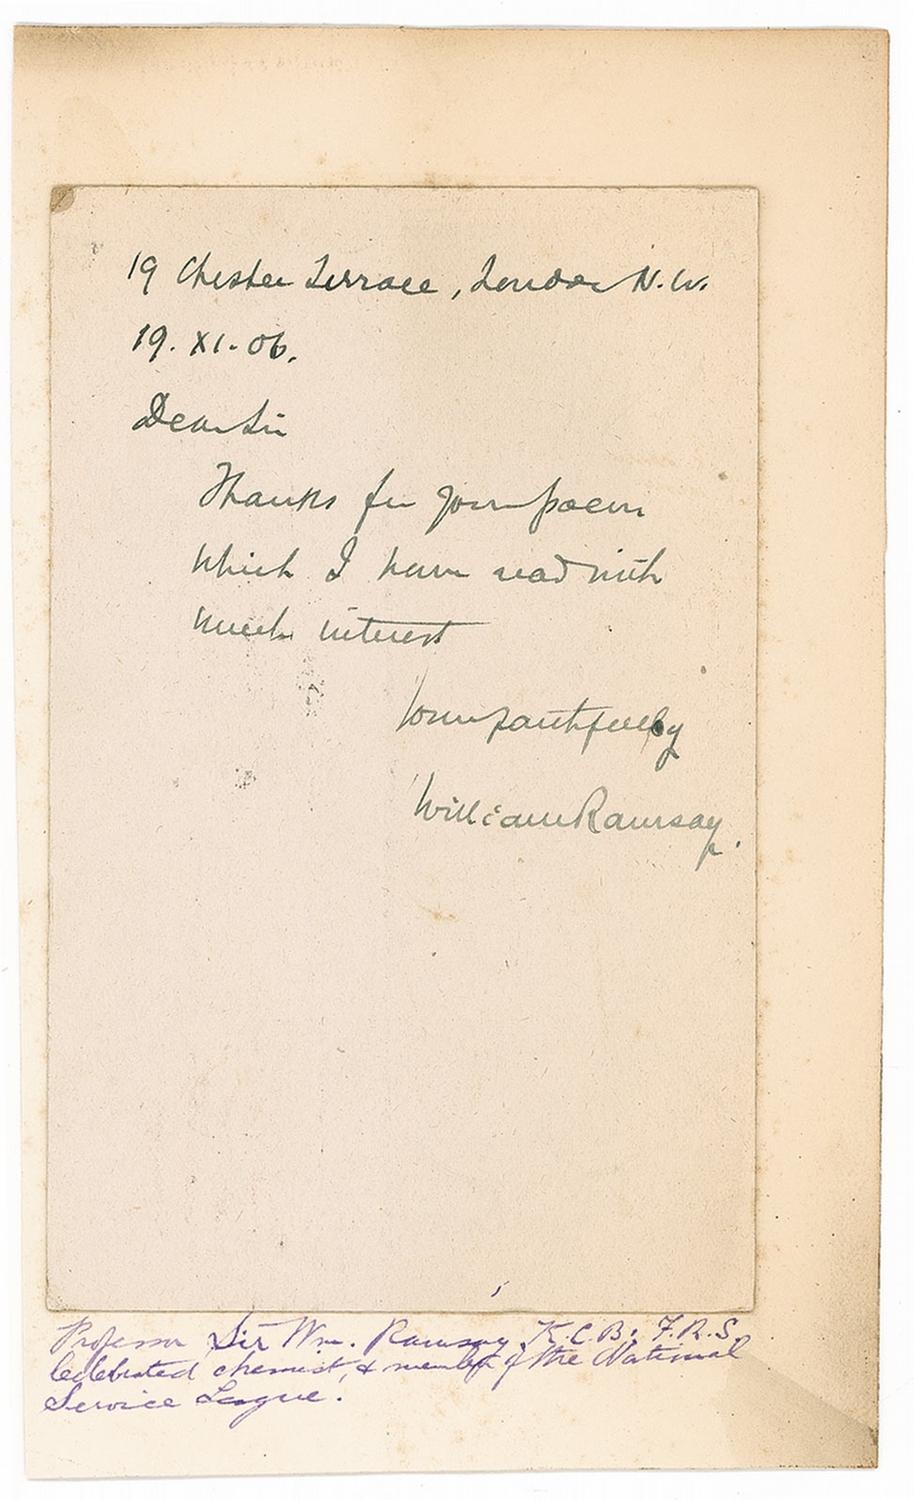 19 Chester Terrace, London N.W.
19. XI. 06.
Dear Sir
Thanks for your poem
which I have read with
much interest
Yours faithfully
William Ramsay.
Professor Sir Wm. Ramsay, K.C.B., F.R.S.
Celebrated chemist, & member of the National
Service League.